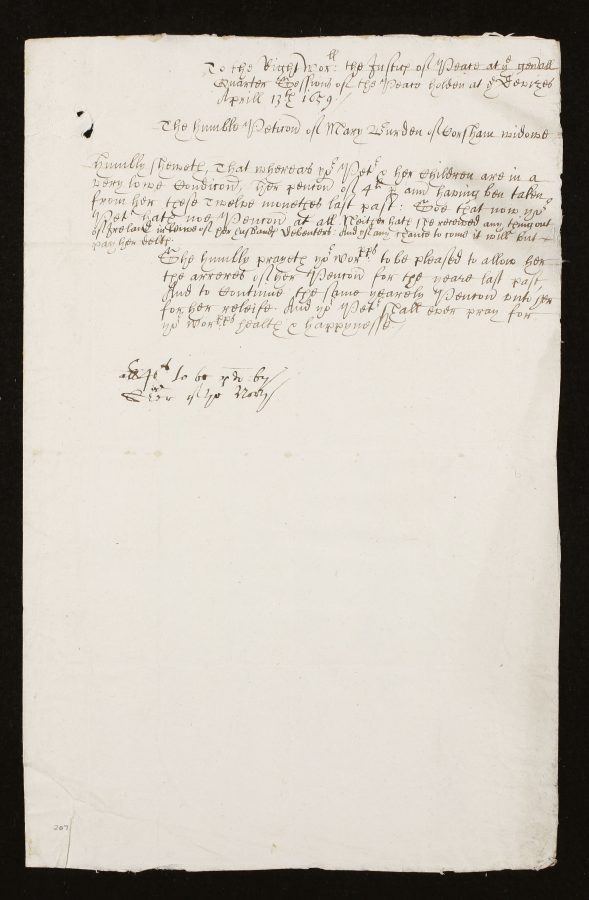 To the Right Wor:ll the Justices of Peace at ye gen'all
Quarter Sessions of the Peace holden at ye Devizes
Aprill 13th 1659
The humble Peticon of Mary Burden of Corsham widowe
Humbly sheweth, That whereas yor Petr & her children are in a
very lowe Condicon, her pencon of 4li p ann haveing ben taken
from her these Twelve monethes last past: Soe that now yor
Petr hath noe Pencon at all Neither hath she received any thing out
of Ireland in lewe of her husbands Debenters: And if any chance to come it will but
pay her debts:
She humbly prayeth yor Worpps to be pleased to allow her
the arreres of her Pencon for the yeare last past,
And to Continue the same yearely Pencon unto her
for her releife. And yor Petr shall ever pray for
yor Worpps health & happynesse
to be pd by
of ye
207